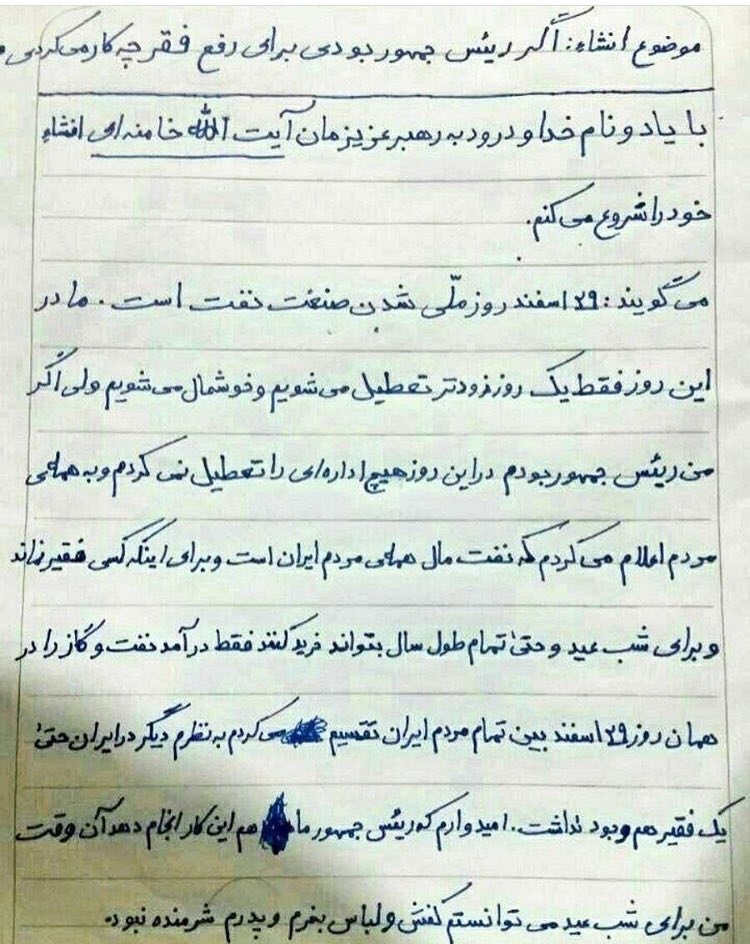 موضوع انشاء: اگر رئیس جمهور بودی برای رفع فقر چه کار می کردی
با یاد و نام خدا و درود به رهبر عزیزمان آیت الله خامنه ای انشاء
خود را شروع می کنم.
می گویند: ۲۹ اسفند روز ملّی شدن صنعت نفت است. ما در
این روز فقط یک روز زودتر تعطیل می شویم و خوشحال می شویم ولی اگر
من رئیس جمهور بودم در این روز هیچ اداره ای را تعطیل نمی کردم و به همه ی
مردم اعلام می کردم که نفت مال همه ی مردم ایران است و برای اینکه کسی فقیر نماند
و برای شب عید و حتی تمام طول سال بتواند خرید کنند فقط درآمد نفت و گاز را در
همان روز ۲۹ اسفند بین تمام مردم ایران تقسیم می کردم به نظرم دیگر در ایران حتی
یک فقیر هم وجود نداشت. امیدوارم که رئیس جمهور ما هم این کار انجام دهد آن وقت
من برای شب عید می توانستم کفش و لباس بخرم و پدرم شرمنده نبود.